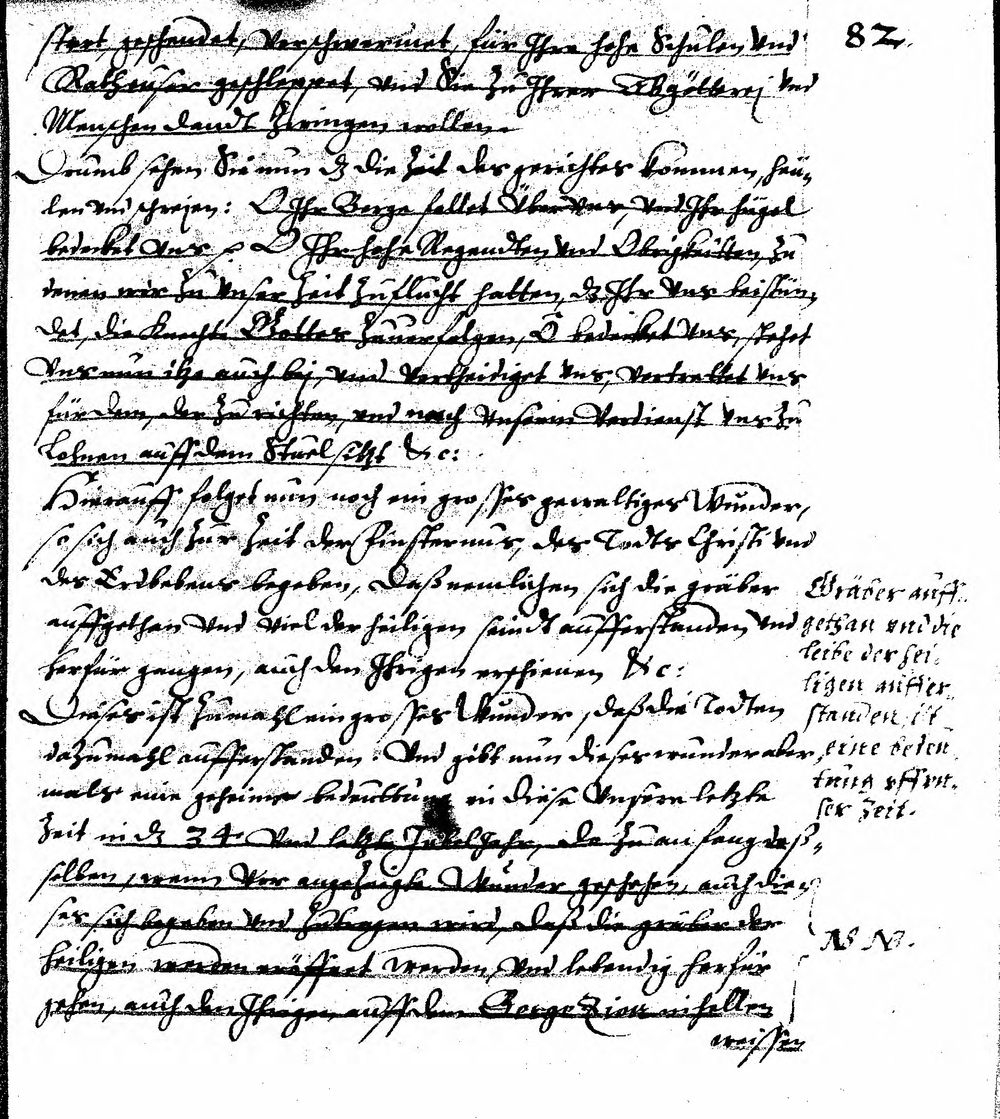 82.
stort, geschendet, verschwermet, für Ihre hohe Schulen und
Rathheuser geschleppet, und Sie zu Ihrer Abgötterej und
Menschen dandt zwingen wollen.
Drumb sehen Sie nun dz die Zeit des gerichtes kommen, heü-
len und schrejen: O Ihr Berge fallet über uns, und Ihr hügel
bedecket uns O Ihr hohe Regendten und Obrigkeitten, zu
denen wir zu unser Zeit zuflucht hatten, dz Ihr uns beistün-
det, die Knechte Gottes zuuerfolgen, O bedecket uns, stehet
uns nun itze auch bej, und vertheidiget uns, vertrettet uns
für dem, der zu richten, und nach unserm verdienst uns zu
Lohnen auff dem Stuel sitzt &c:
Hierauff folget nun noch ein grosses gewaltiges Wunder,
so sich auch zur Zeit der Finsternus, des Todts Christi und
des Erdbebens begeben, Daß nemlichen sich die gräber
auffgethan und viel der heiligen seindt aufferstanden und
herfür gangen, auch den Ihrigen erschienen &c:
Dieses ist zumahl ein grosses Wunder, daß die Todten
dazumahl aufferstanden. Und gibt nun dieses wunder aber-
mals eine geheime bedeuttung in diese unsere letzte
Zeit in dz 34 und letzte JubelJahr, da zu anfang deß-
selben, wenn vor angezeigte Wunder geschehen, auch die-
ses sich begeben und zutragen wird, daß die gräber der
heiligen werden eröffnet werden, und lebendig herfür
gehen, auch den Ihrigen auff dem Berge Zion in hellen
weissen
Gräber auff-
gethan und die
leibe der hei-
ligen auffer-
standen, ist
eine bedeu
tung uff un-
ser Zeit.
NB NB.